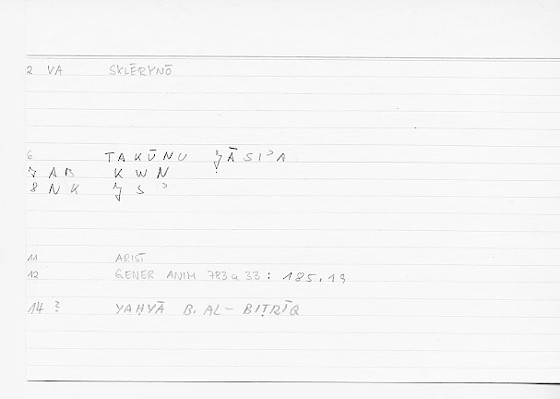 2 VA SKLĒRYNŌ
6 TAKŪNU JĀSIʾA
7 AB KWN
8 NK J S ʾ
11 ARIST
12 GENER ANIM 783 a 33 : 185.19
14 ? YAḤYĀ B. AL-BIṬRĪQ